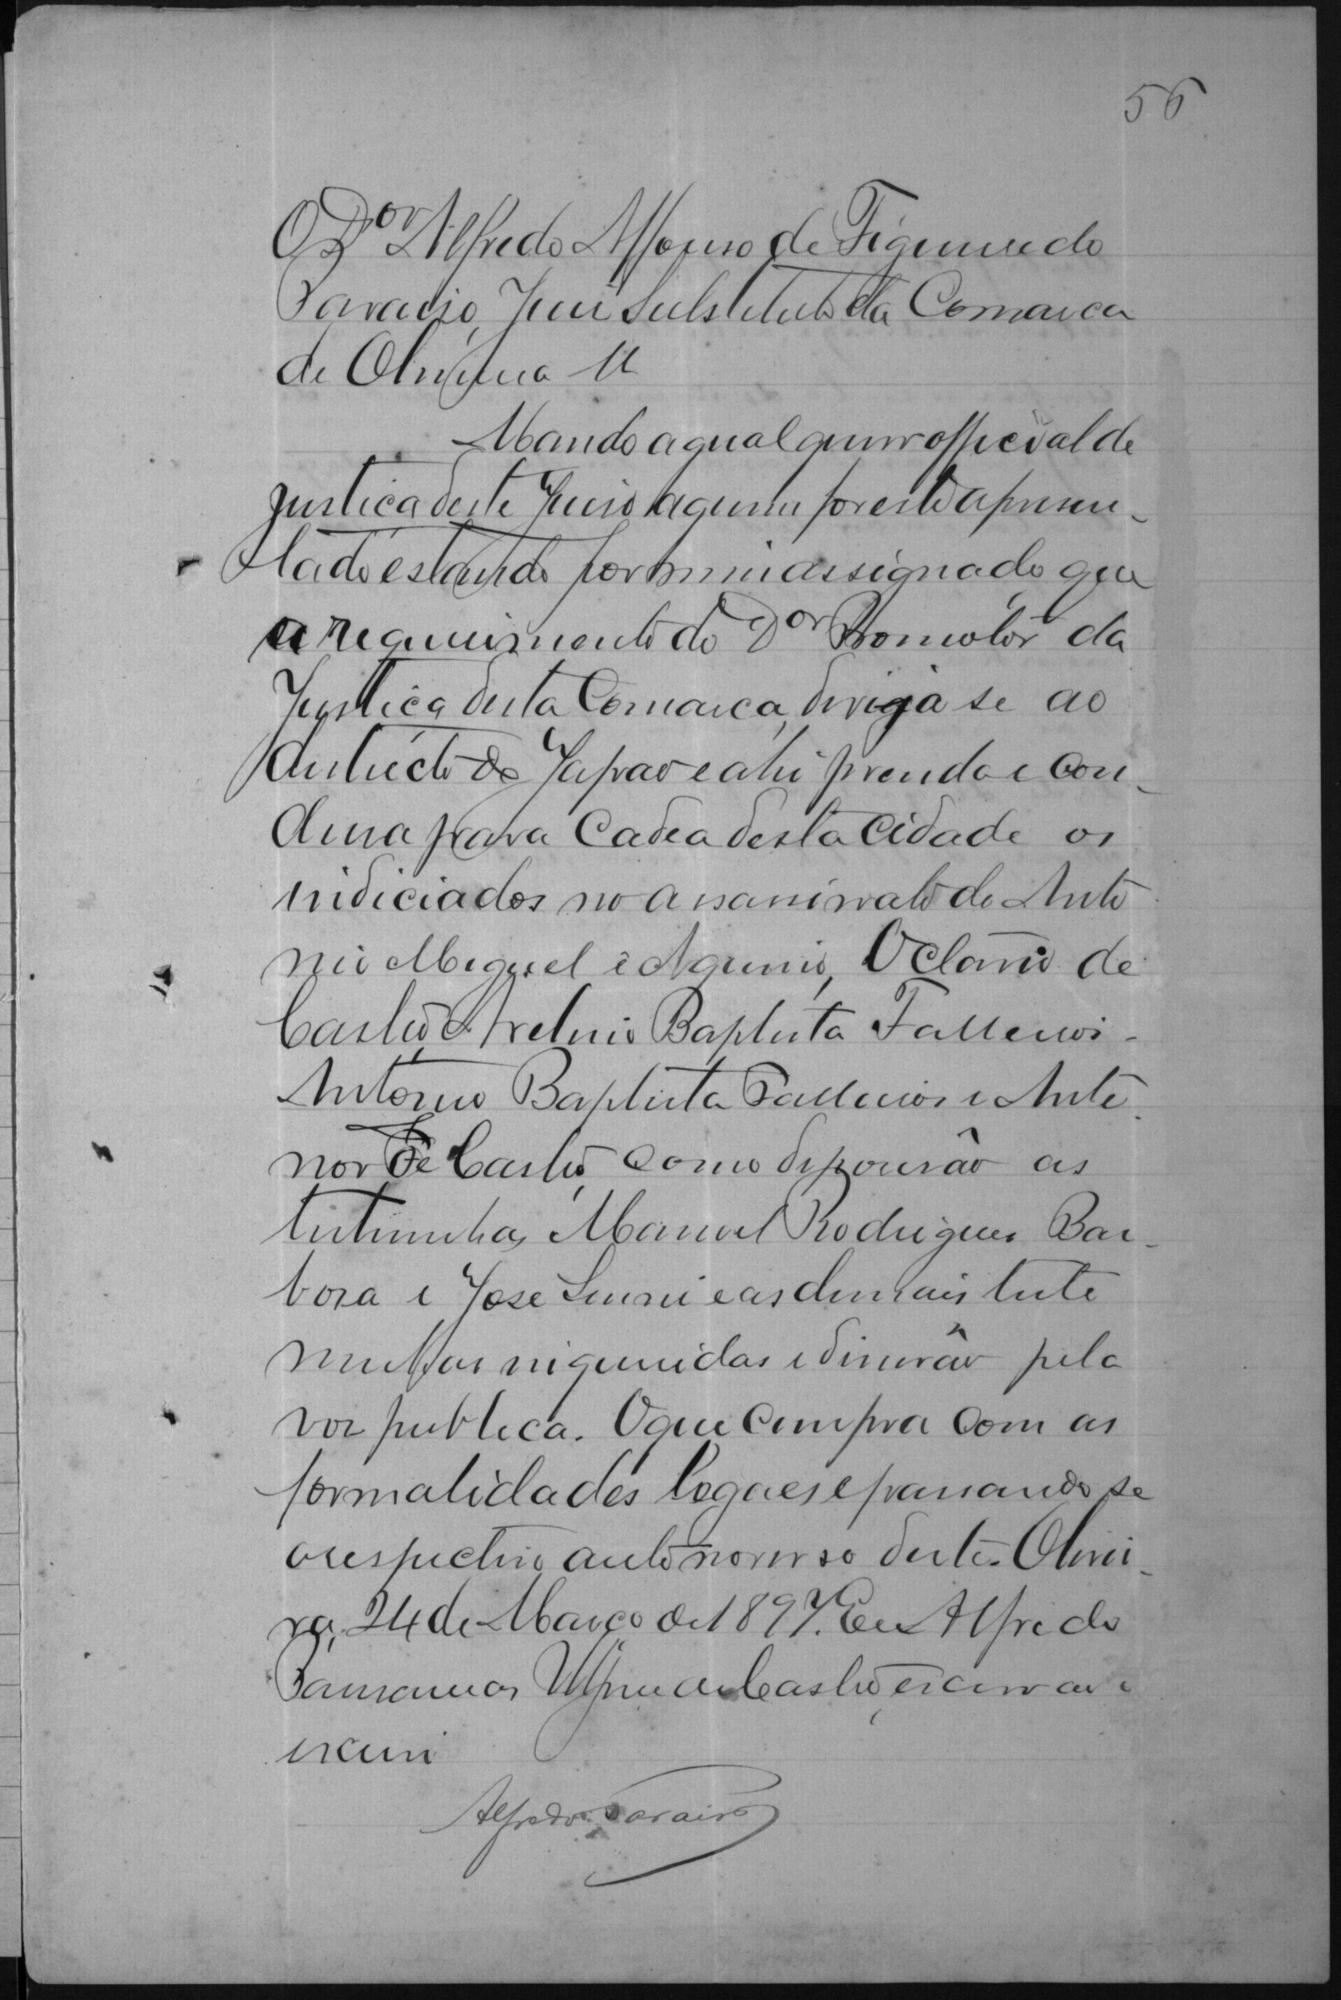 56
O Dor Alfredo Affonso de Figueiredo
Paraiso, Juis Substituto da Comarca
de Oliveira &
Mando a qual quer official de
justica deste Juiso a quem for este apresen-
tado estando por mim assignado que
a requerimento do Dor Promotor da
Justica desta Comarca, dirija se ao
districto do Japão e ahi prenda e con-
dusa para Cadea desta Cidade os
indiciados no assassinato de Anto
nio Miguel e Agenio, Octavio de
Castro, Avelino Baptista
Antonio Baptista e Ante
nor de Castro, como deposerão as
testimunhas Manoel Rodrigues Bar-
bosa e Jose e as demais teste
munhas inqueridas e disserão pela
voz publica. O que cumpra com as
formalidades legaes e passando se
o respectivo auto no verso deste. Olivei-
ra, 24 de Março de 1897. Eu Alfredo
Castro, escrivão e
escrevi
Alfredo Paraiso